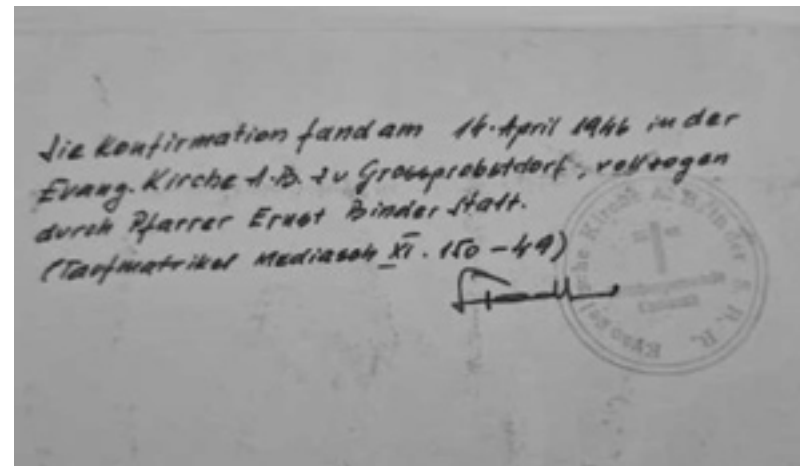 Die Konfirmation fand am 14. April 1946 in der
Evang. Kirche A.B. zu Grossprobstdorf, vollzogen
durch Pfarrer Ernst Binder statt.
(Taufmatrikel Mediasch XI. 150-49)
Evangelische Kirche A. B. in der R. R.